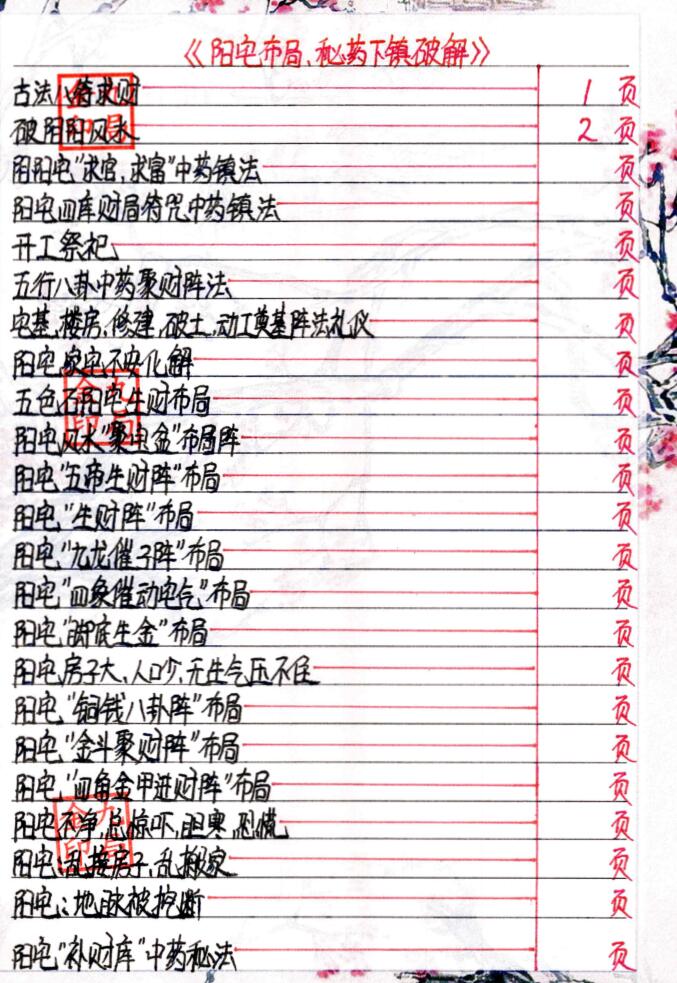 《阳宅布局、秘药下镇破解》
古法八符求财 1 页
破阴阳风水 2 页
阴阳宅“求官、求富”中药镇法 页
阳宅四库财局符咒中药镇法 页
开工祭祀 页
五行八卦中药聚财阵法 页
宅基、楼房、修建、破土、动工奠基阵法礼仪 页
阳宅家宅不安化解 页
五色石阳宅生财布局 页
阳宅风水“聚宝盆”布局阵 页
阳宅“五帝生财阵”布局 页
阳宅“生财阵”布局 页
阳宅“九龙催子阵”布局 页
阳宅“四象催动宅气”布局 页
阳宅“脚底生金”布局 页
阳宅房子大、人口少、无生气压不住 页
阳宅“铜钱八卦阵”布局 页
阳宅“金斗聚财阵”布局 页
阳宅“四角金甲进财阵”布局 页
阳宅不净，总惊吓，胆寒，恐慌 页
阳宅：乱接房子、乱搬家 页
阳宅：地脉被挖断 页
阳宅“补财库”中药秘法 页